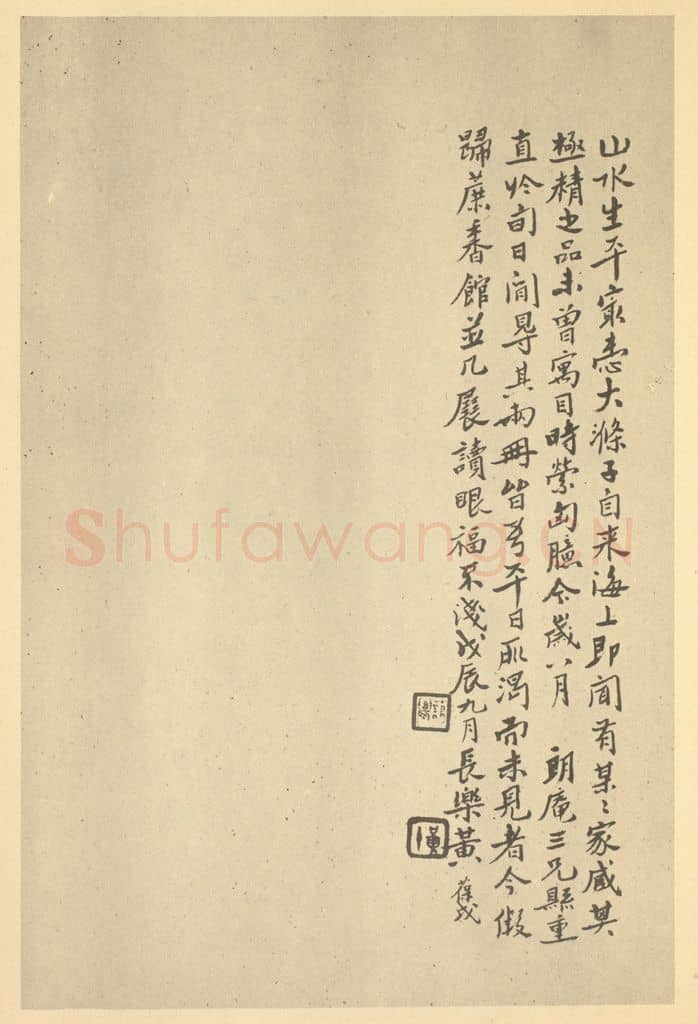 山水生平冣愙大滌子自来海上即聞有某〻家臧其
極精之品未曾寓目時縈匈臆今歲八月 朗庵三兄縣重
直於旬日間㝵其兩冊皆為平日所渴而未見者今假
歸蔗香館並几展讀眼福不淺戊辰九月長樂黃葆戉
Shufawang.CN